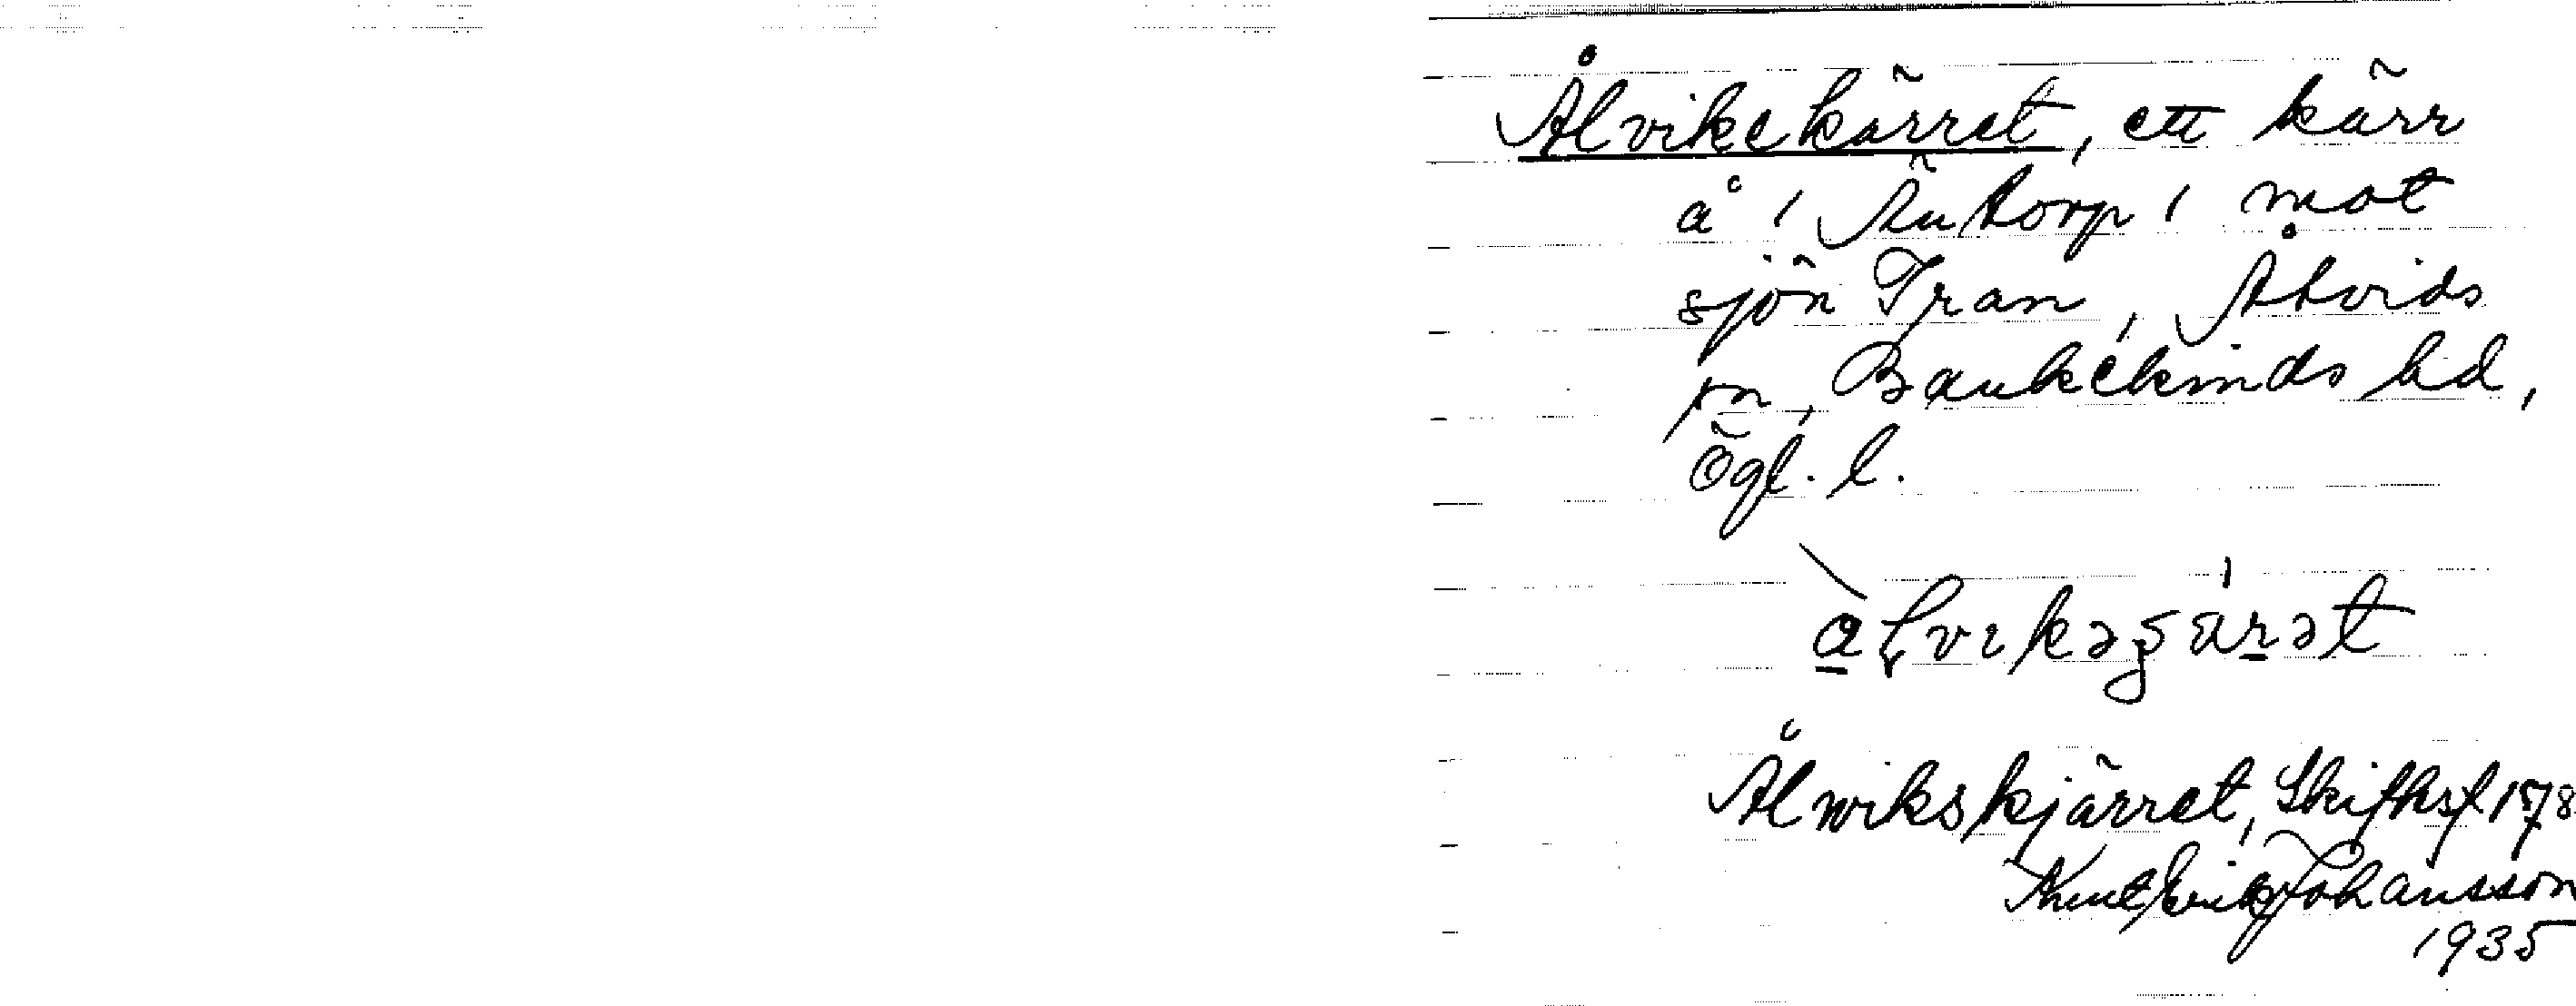 Ålvikekärret, ett kärr
å / Ãntorp / mot
sjön Tran, Åtvids
sn, Bankekinds hd,
Ögl. l.
Ålwikskjärret, Skifksf. 178
Knut Erik Johansson
1935